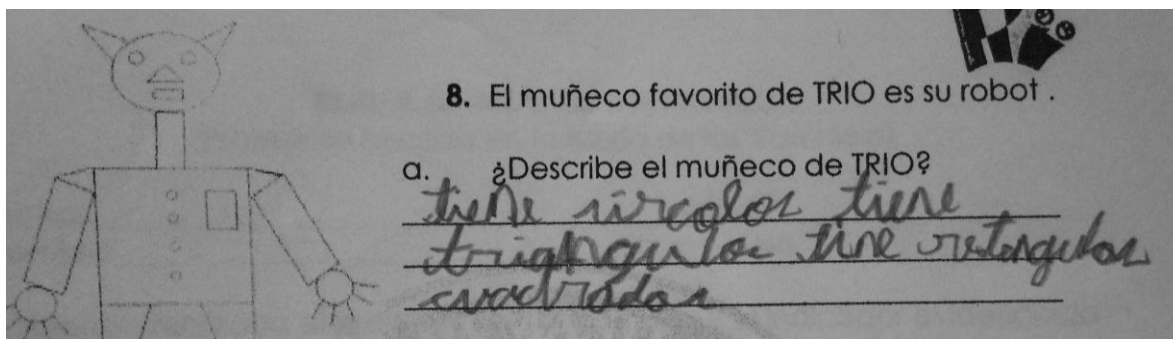 8. El muñeco favorito de TRIO es su robot .
a. ¿Describe el muñeco de TRIO?
tiene sircolos tiene
triangulos tine retangulos
cuadrados